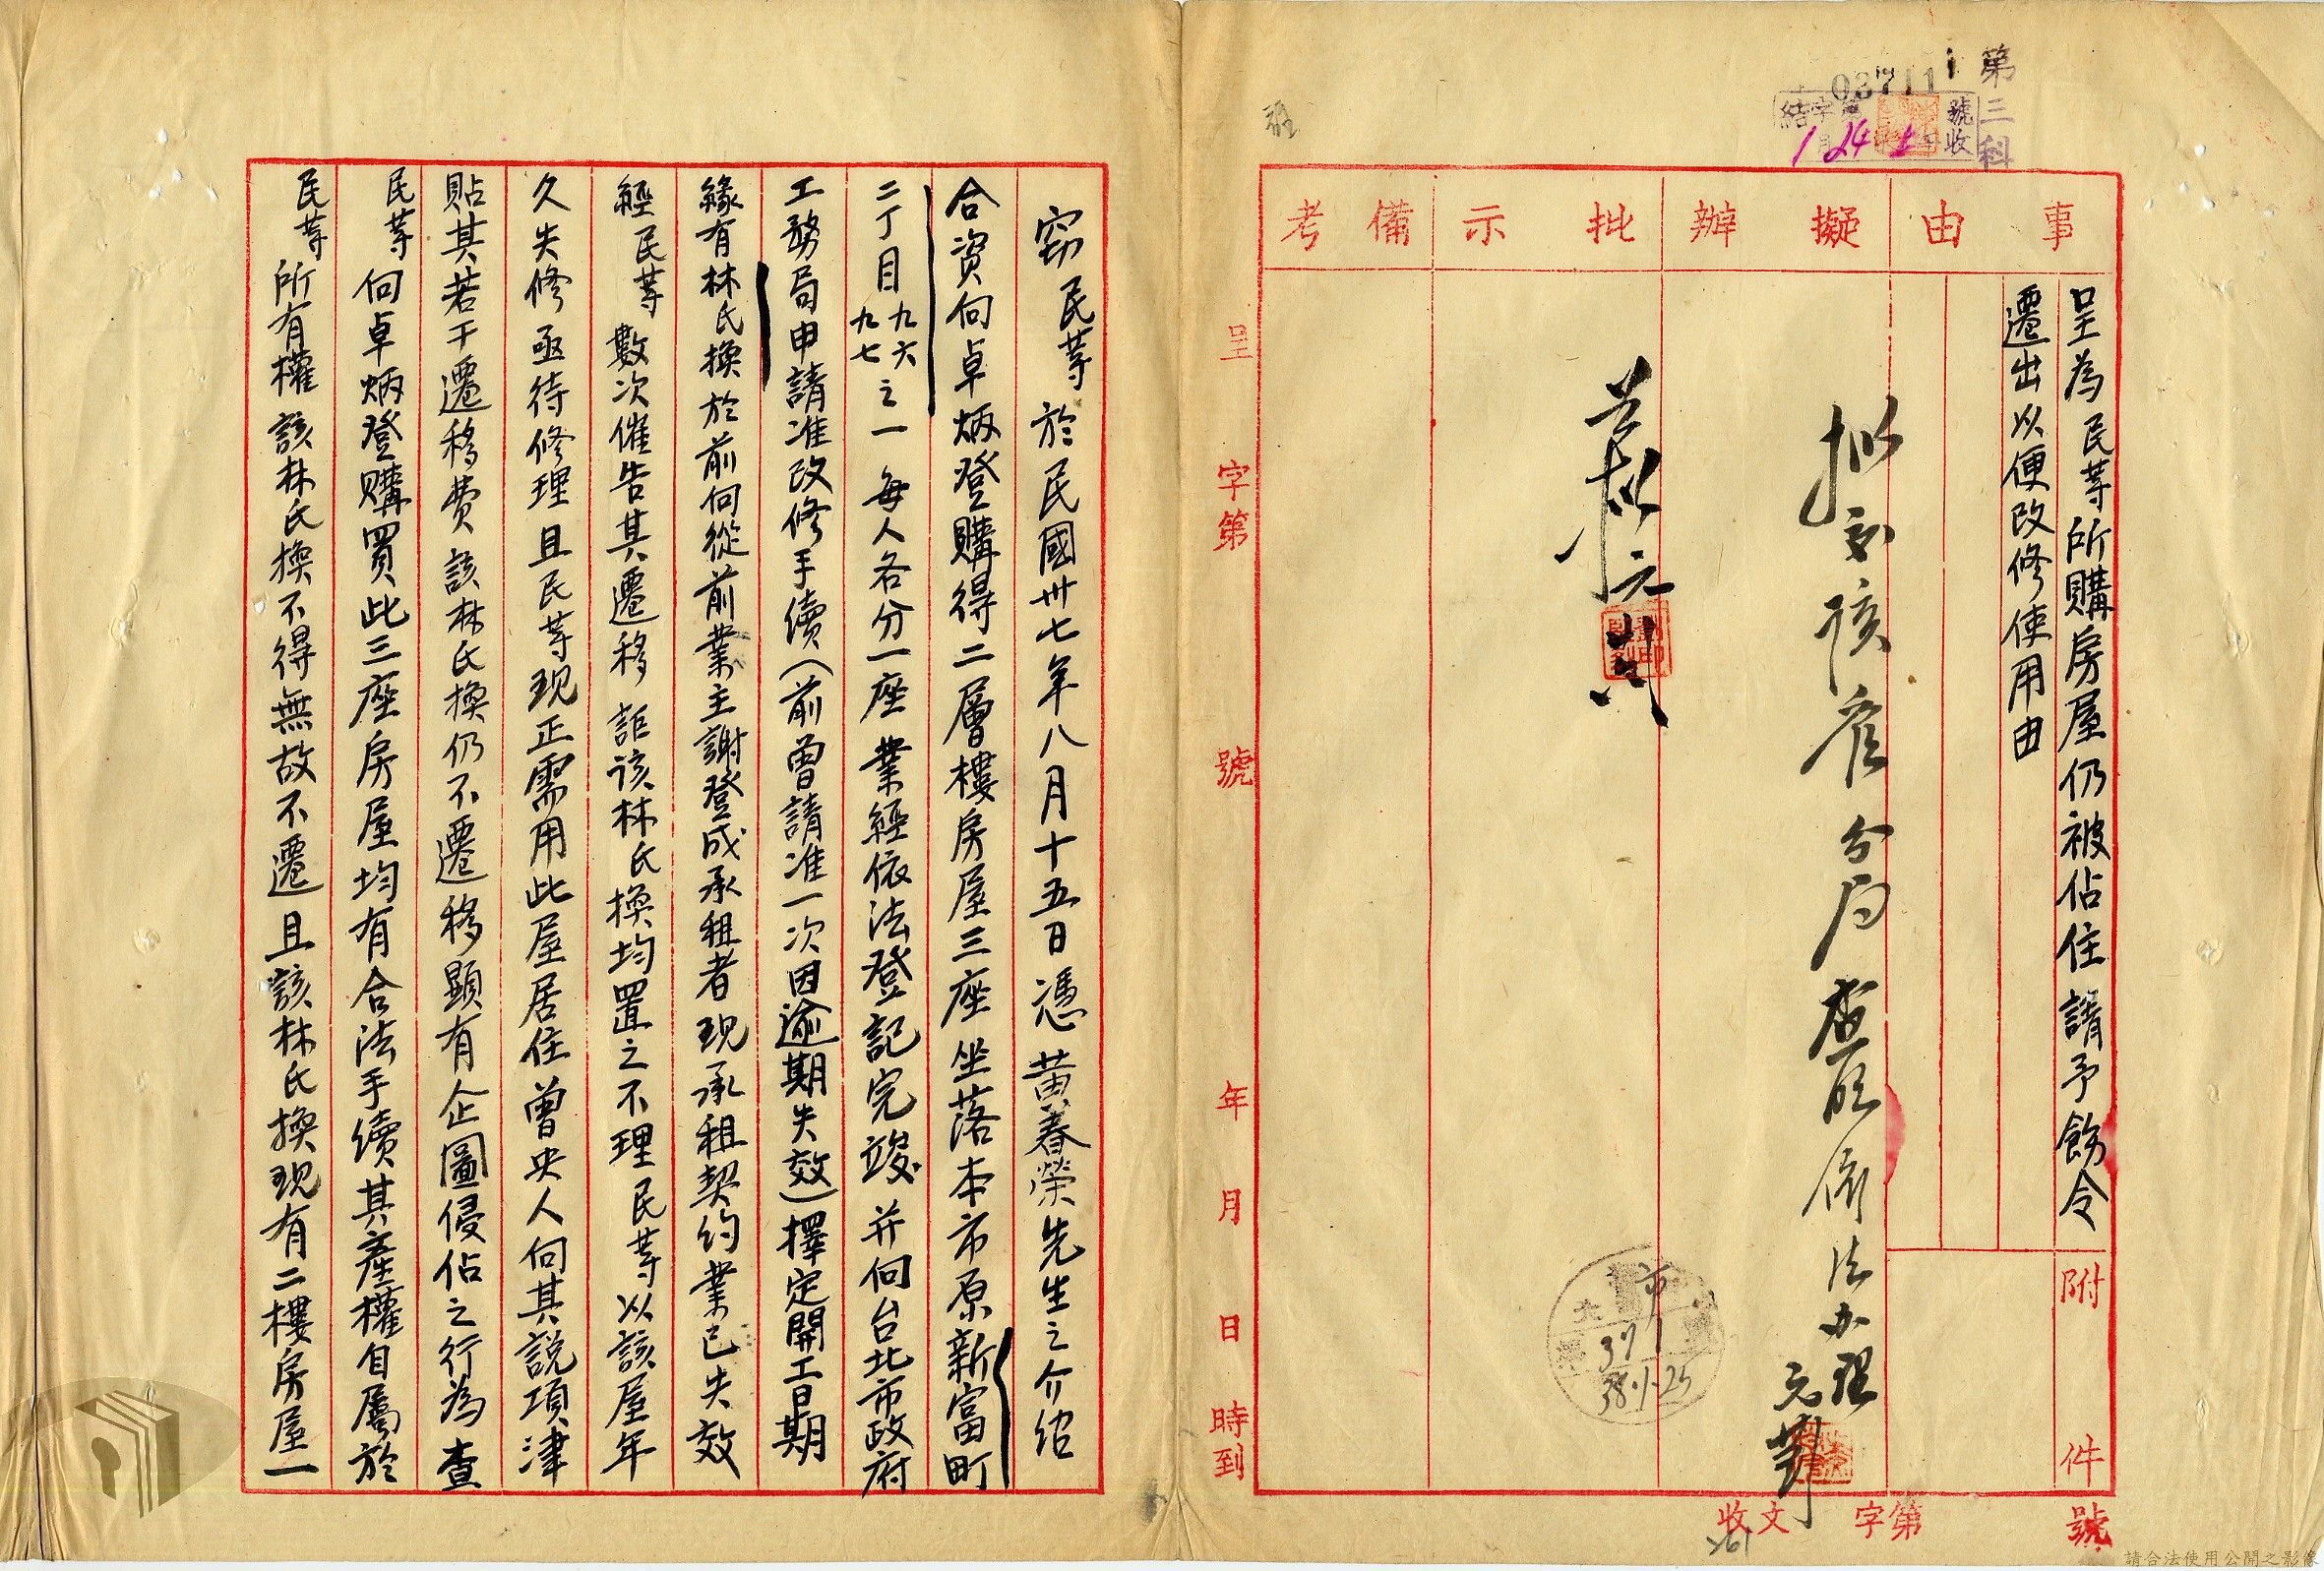 第三科
03711
號收
1 24
事由
擬辦
批示
備考
呈為民等所購房屋仍被佔住請予飭令
遷出以便改修使用由
附件
擬交該管分局查明依法办理
元
劉
37 1
38.1.25
號
第 字
收文
261
呈 字第 號 年 月 日 時到
竊民等於民國卅七年八月十五日憑黃春榮先生之介紹
合資向卓炳登購得二層樓房屋三座坐落本市原新富町
二丁目九六九七之一每人各分一座業經依法登記完竣并向台北市政府
工務局申請准改修手續(前曾請准一次因逾期失效)擇定開工日期
緣有林氏換於前向從前業主謝登成承租者現承租契約業已失效
經民等數次催告其遷移詎該林氏換均置之不理民等以該屋年
久失修亟待修理且民等現正需用此屋居住曾央人向其説項津
貼其若干遷移費該林氏換仍不遷移顯有企圖侵佔之行為查
民等向卓炳登購買此三座房屋均有合法手續其產權自屬於
民等所有權該林氏換不得無故不遷且該林氏換現有二樓房屋一
請合法使用公開之影像